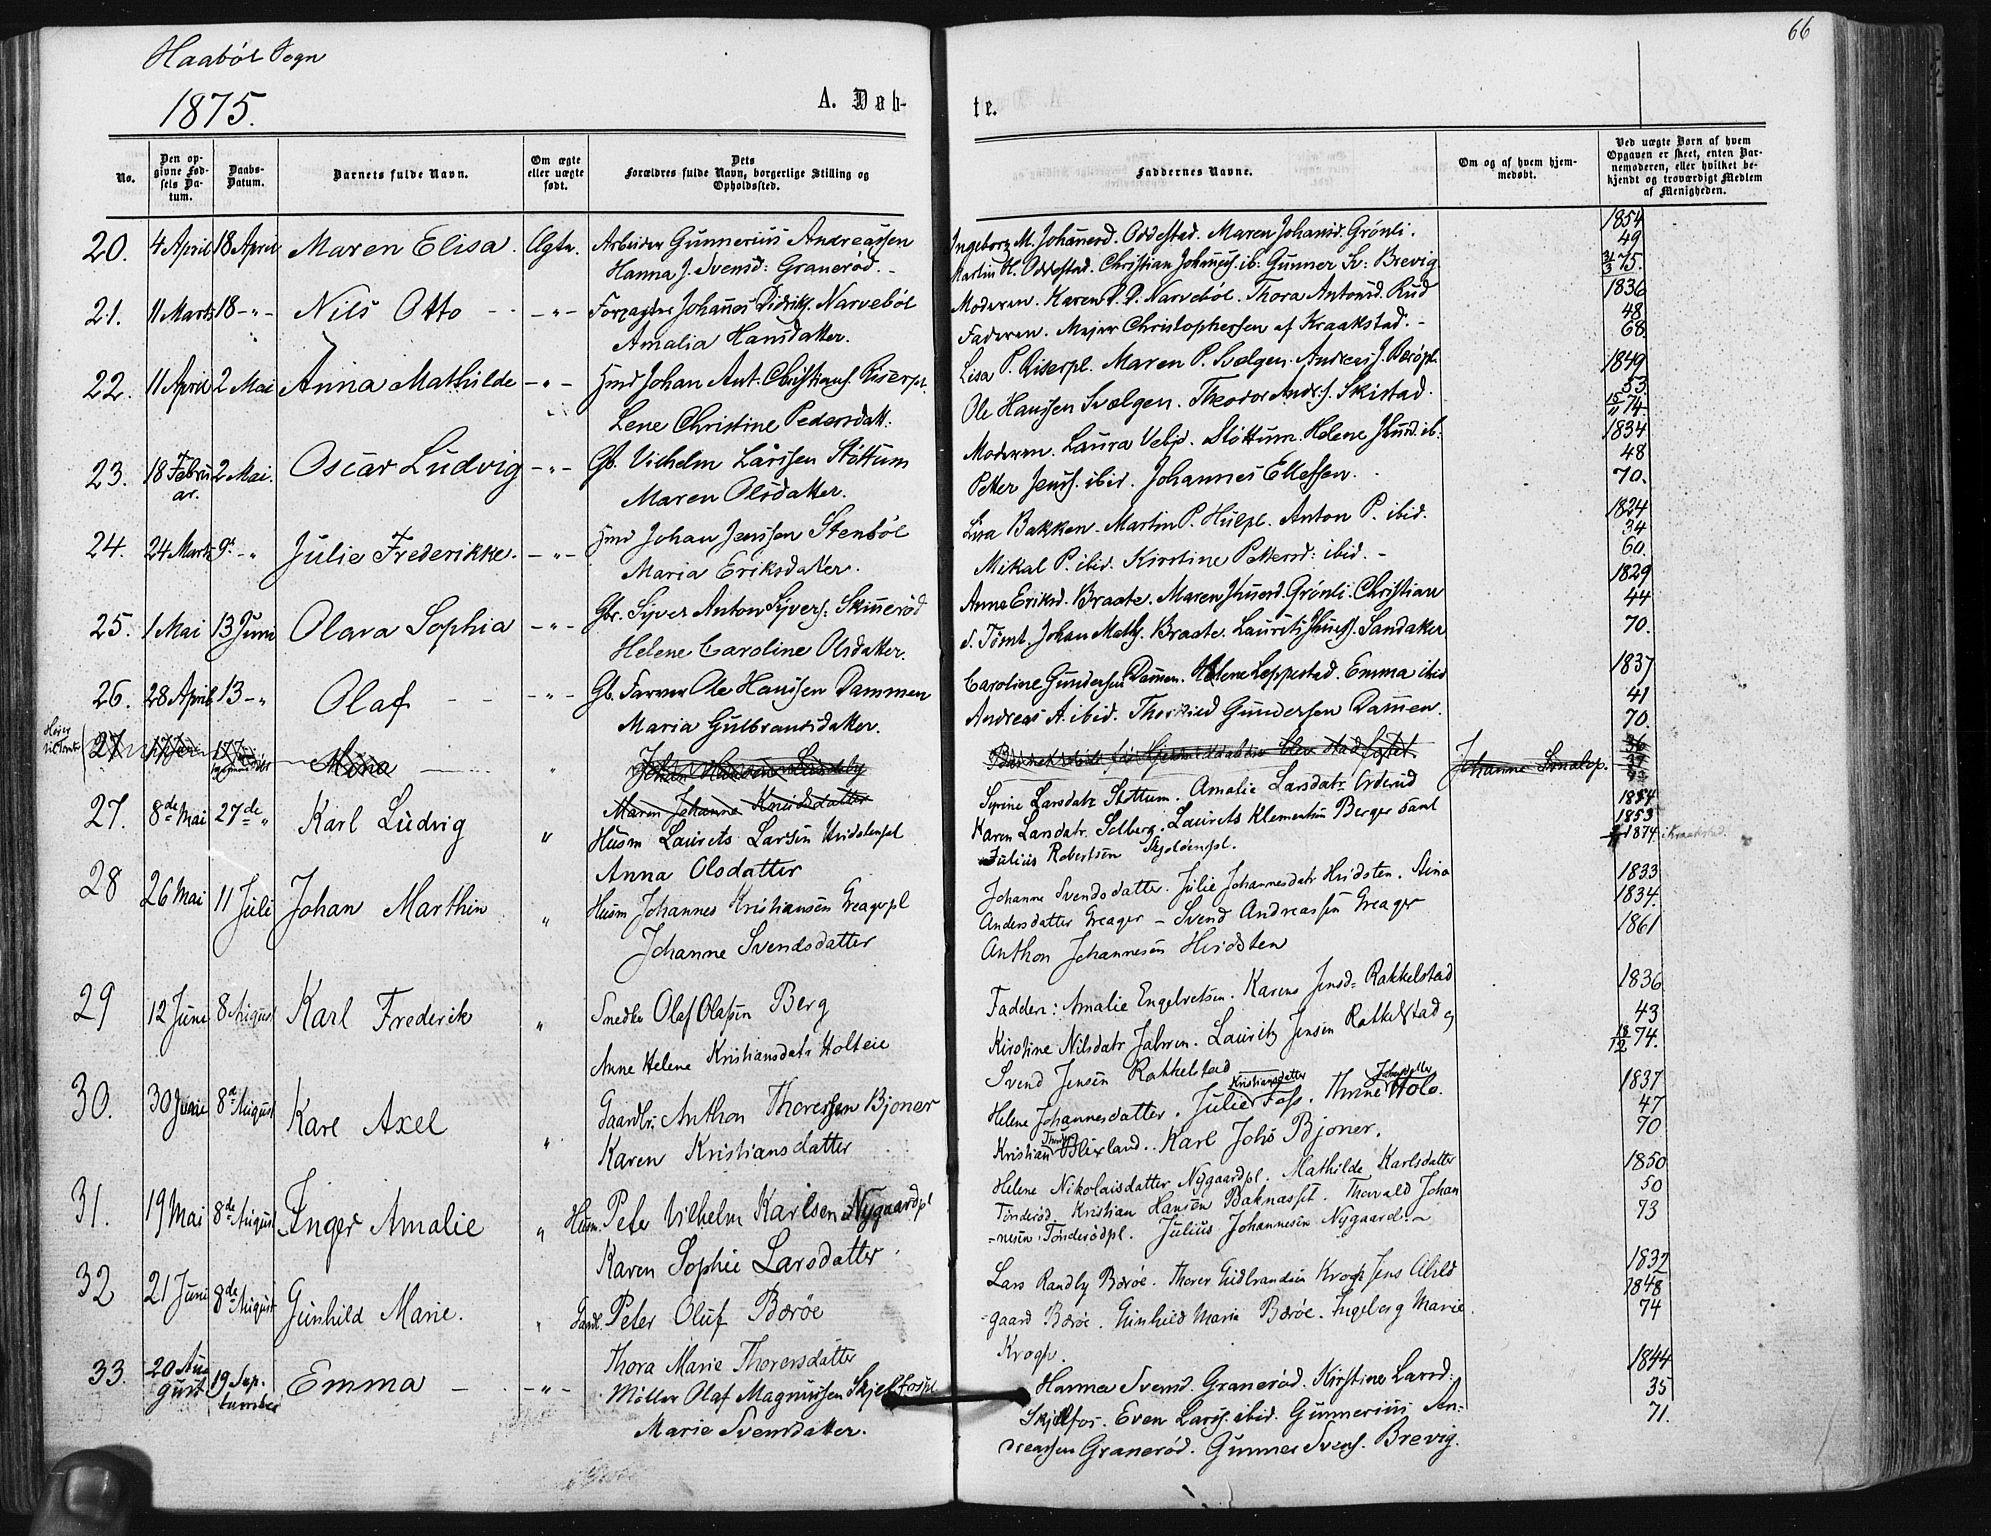 66
Haabøl Sogn
1875.
A. Døb-
te.
No.
Den op-
givne Fød-
sels Da-
tum.
Daabs-
Datum.
Barnets fulde Navn.
Om ægte
eller uægte
født.
Dets
Forældres fulde Navn, borgerlige Stilling og
Opholdssted.
Faddernes Navne.
Om og af hvem hjem-
medøbt.
Ved uægte Born af hvem
Opgaven er skeet, enten Bar-
nemoderen, eller hvilket be-
kjendt og troværdigt Medlem
af Menigheden.
20. 4 April 18 April Maren Elisa. Ægte. Arbeider Gunnerius Andreassen
Hanna J. Svensd: Granerød. -
Ingeborg M. Johansd. Oddestad. Maren Johansd. Grönli.
Martin H. Oddestad. Christian Johans. ib: Gunner Sv: Brevig
1854
49
31/3 75.
21. 11 Marts 18 - " - Nils Otto - " - Forpagter Johannes Didriks. Narvebøl
Amalia Hansdatter.
Moderen. Karen D. D. Narvebøl. Thora Antonsd. Rud
Faderen. Major Christophersen af Kraakstad. -
1836
48
68.
22. 11 April 2 Mai Anna Mathilde - " - Hmd Johan Ant. Christians. Riserpl.
Lene Christine Pedersdatt.
Lisa P. Riserpl. Maren P. Svelgen. Andreas J. Berøpl.
Ole Hanssen Svælgen. Theodor Andr. Skistad.
1849
53
15/11 74.
23. 18 Febru-
ar. 2 Mai. Oscar Ludvig - " - Gb. Vilhelm Larssen Støttum
Maren Olsdatter.
Moderen. Laura Velp. Støttum. Helene Jhnsd. ib:
Petter Jens. ibid. Johannes Ellefsen.
1834
48
70.
24. 24 Marts 9. - " Julie Frederikke. - " - Hmd Johan Jenssen Stenbøl
Maria Eriksdatter.
Lisa Bakken. Martin P. Hulpl. Anton P. ibid.
Mikal P. ibid. Kirstine Pettersd: ibid. -
1824
34
60.
25. 1 Mai 13 Juni Olava Sophia - " - Gbr. Syver Anton Syvers. Skinerød
Helene Caroline Olsdatter.
Anne Eriksd. Braate. Maren Jhnesd. Grönli. Christian
S. Tømt. Johan Math. Braate. Laurits Jhns. Sandaker
1829
44
70.
26. 28 April 13 - " Olaf - " - Gb. Farver Ole Hanssen Dammen
Maria Gulbrandsdatter.
Caroline Gundersen Damen. Helene Leppestad. Emma ibid
Andreas A. ibid. Thorvald Gundersen Damen.
1837
41
70.
27 Mina
Maren Johanne Knudsdatter
27. 8de Mai 27de " Karl Ludvig " Husm Laurits Larsen Hvidstenpl
Anna Olsdatter
Syrine Larsdatr Støttum. Amalie Larsdatr Orderud
Karen Larsdatr. Solberg. Laurits Klementsen Berger samt
Julius Robertsen Skjoldenpl.
1854
1853
1874 i Kraakstad.
28 26 Mai 11 Juli Johan Marthin " Husm Johannes Kristiansen Greagerpl
Johanne Svendsdatter
Johanne Svendsdatter. Julie Johannesdatr Hvidsten. Stina
Andersdatter Greager - Svend Andreassen Greager
Anthon Johannesen Hvidsten
1833
1834.
1861
29 12 Juni 8 August Karl Frederik " Smedke Olaf Olafsen Berg
Anne Helene Kristiansdatr Holteie
Faddere: Amalie Engelretsen. Karens Jensd- Rakkelstad
Kirstine Nilsdatr Jahren. Lauritz Jensen Rakkelstad og
Svend Jensen Rakkelstad
1836
43
18/12 74.
30. 30 Juni 8de August Karl Axel " Gaardbr. Anthon Thoressen Bjoner
Karen Kristiansdatter
Helene Johannesdatter. Julie Kristiansdatter Foss. Thrine Johsdatter Holo.
Kristian Thores. Blixland. Karl Johs Bjoner.
1837
47
70
31. 19 Mai 8de August Inger Amalie " Husm. Peter Vilhelm Karlsen Nygaardpl
Karen Sophie Larsdatter
Helene Nikolaisdatter Nygaardpl. Mathilde Karlsdatter
Tønderød. Kristian Hansen Baknaspl. Thorvald Johan
-nesen Tønderødpl. Julius Johannesen Nygaard. ~
1850
50
73
32 21 Juni 8de August Gunhild Marie. " Gaardb. Peter Oluf Børøe
Thora Marie Thorersdatter
Lars Randby Børøe. Thorer Guldbrandsen Krogh Jens Abild
-gaard Børøe. Gunhild Maria Børøe. Ingeborg Marie
Krogh.
1832
1848
74
33. 20 Au-
gust 19 Sep-
tember Emma - " - Møller Olaf Magnussen Skjelfospl
Marie Svensdatter.
Hanna Svensd. Granerød. Kirstine Larsd:
Skjelfos. Even Larss. ibid. Gunnerius An-
dreassen Granerød. Gunner Svens. Brevig.
1844
35
71.